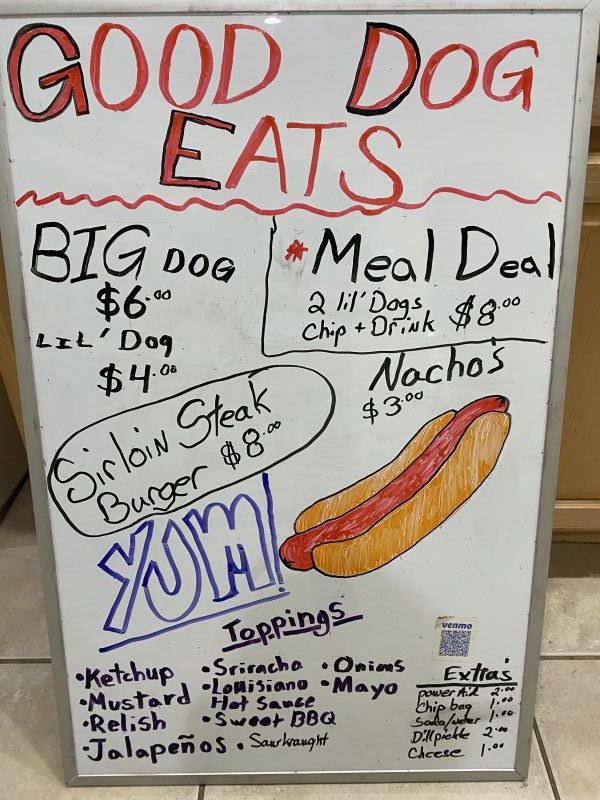 GOOD DOG
EATS
BIG DOG
$6.00
LIL' Dog
$4.00
*Meal Deal
2 lil' Dogs
Chip + Drink $8.00
Nacho's
$3.00
Sirloin Steak
Burger $8.00
YUM!
Toppings
•Ketchup
•Mustard
•Relish
•Jalapeños
•Sriracha
•Louisiano
Hot Sauce
•Sweet BBQ
•Saurkraught
•Onions
•Mayo
venmo
Extra's
power Aid 2.00
Chip bag 1.00
Soda/water 1.00
Dill pickle 2.00
Cheese 1.00